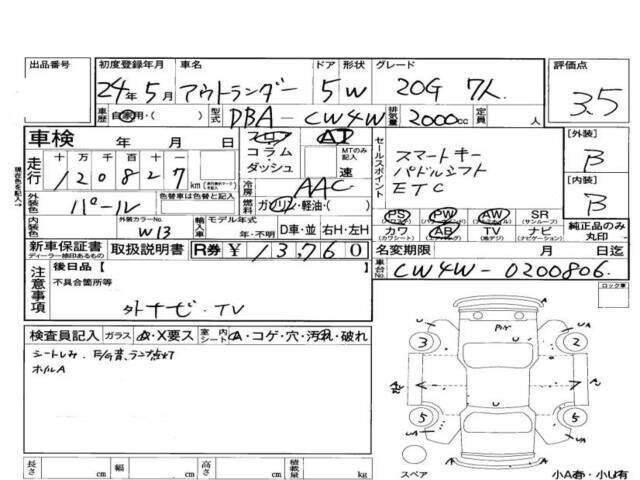 出品番号 初度登録年月 車名 ドア 形状 グレード 評価点
24年5月 アウトランダー 5 W 20G 7人 3.5
車歴 自家用・( ) 型式 DBA-CW4W 排気量 2000cc 定員 人
車検 年 月 日 フロア AT セールスポイント [外装]
走行 十万千百十 120827km コラム・ダッシュ MTのみ記入 速 スマートキー B
現在色を記入→ 冷房 AAC パドルシフト [内装]
外装色 パール 色替車は色替と記入 燃料 ガソリン・軽油・( ) ETC B
内装色 外装カラーNo. W13 輸入車 モデル年式 年・不明 D車・並 右H・左H
PS (パワステ) PW (パワーウィンドウ) AW (アルミホイール) SR (サンルーフ) 純正品のみ丸印
カワ (カワシート) AB (エアバッグ) TV (地デジ) ナビ (ナビゲーション)
新車保証書 ディーラー捺印あるもの 取扱説明書 R券 ¥13,760 名変期限 月 日迄
注意事項 後日品【 】 車台No. CW4W-0200806.
不具合箇所等 ロック車
外ナビ・TV
検査員記入 ガラス A・X要ス 室内シート A・コゲ・穴・汚れ・破れ
シートしみ E/G音、ランプ点灯
ホイルA
3 2
5 5
長さ cm 幅 cm 高さ cm 積載量 kg
スペア 小A有・小U有